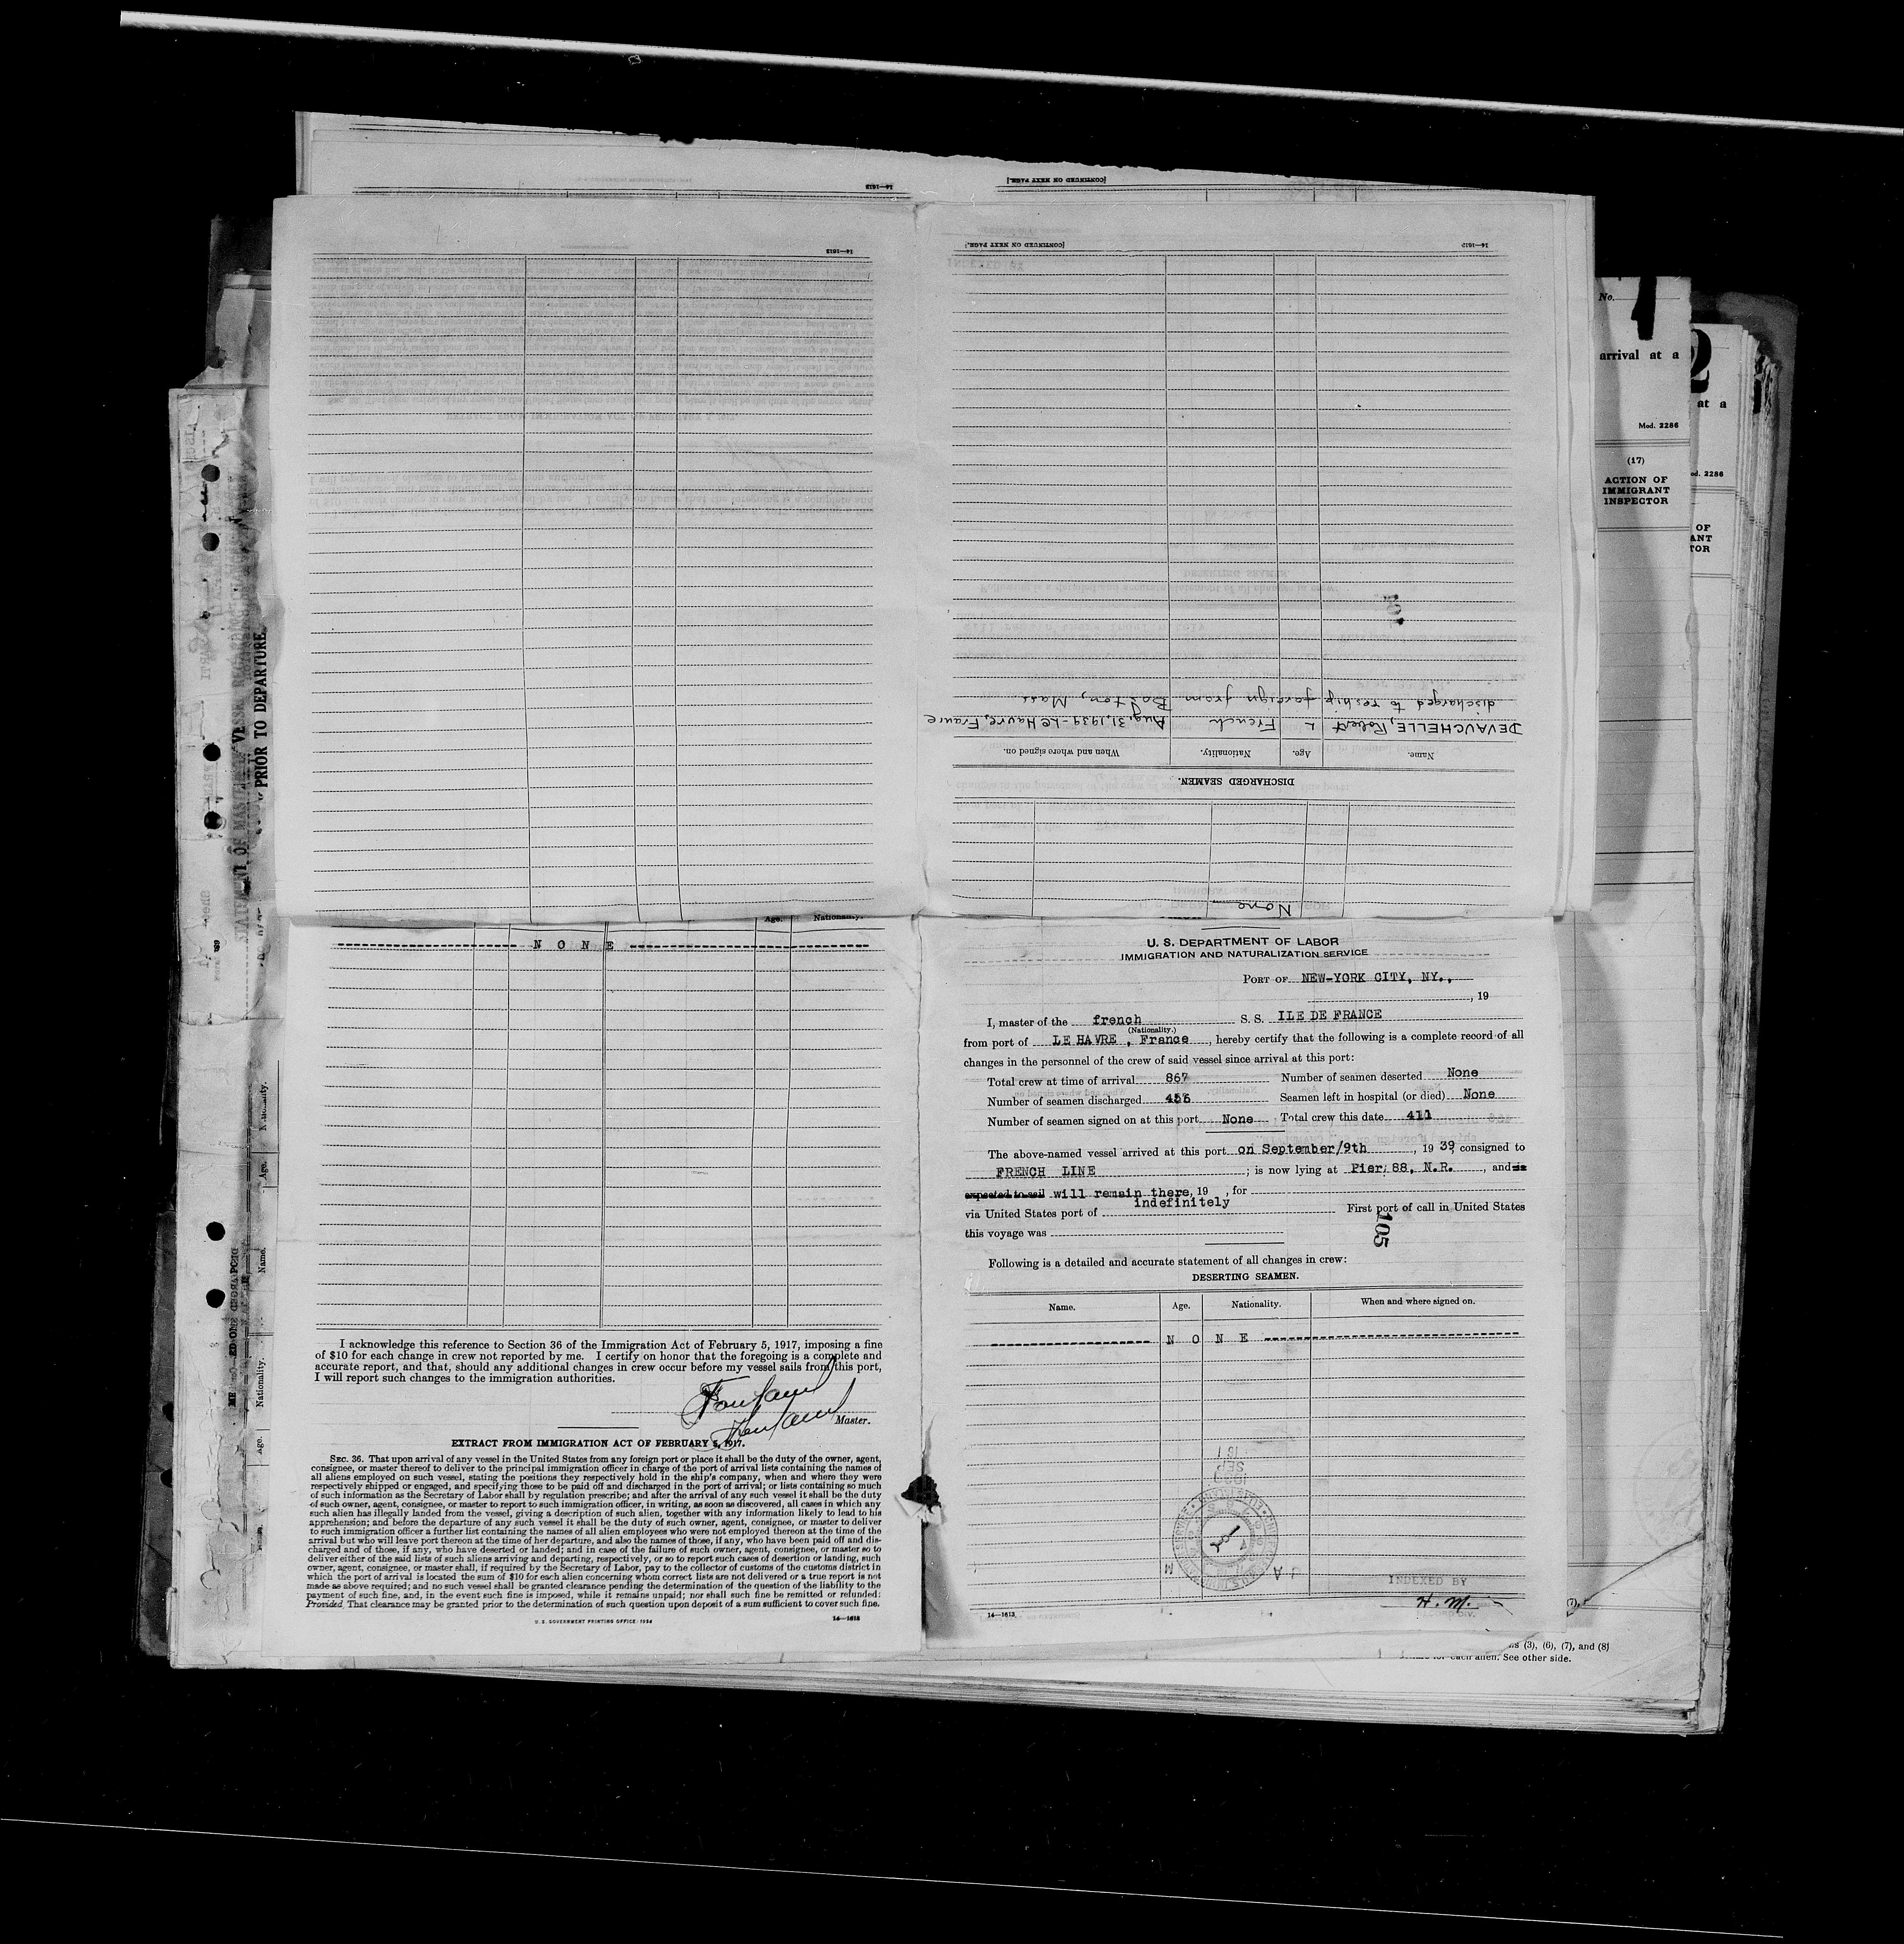 [CONTINUED ON NEXT PAGE.]
14—1613
14—1613
[CONTINUED ON NEXT PAGE.]
14—1613
None
DISCHARGED SEAMEN.
Name. Age. Nationality. When and where signed on.
DEVAUCHELLE, Robert French Aug. 31, 1939 - Le Havre, France
discharged to reship foreign from Boston, Mass
No.
arrival at a
Mod. 2286
(17)
ACTION OF
IMMIGRANT
INSPECTOR
2
at a
PRIOR TO DEPARTURE
Age. Nationality.
N O N E
I acknowledge this reference to Section 36 of the Immigration Act of February 5, 1917, imposing a fine
of $10 for each change in crew not reported by me. I certify on honor that the foregoing is a complete and
accurate report, and that, should any additional changes in crew occur before my vessel sails from this port,
I will report such changes to the immigration authorities.
Master.
EXTRACT FROM IMMIGRATION ACT OF FEBRUARY 5, 1917.
SEC. 36. That upon arrival of any vessel in the United States from any foreign port or place it shall be the duty of the owner, agent,
consignee, or master thereof to deliver to the principal immigration officer in charge of the port of arrival lists containing the names of
all aliens employed on such vessel, stating the positions they respectively hold in the ship's company, when and where they were
respectively shipped or engaged, and specifying those to be paid off and discharged in the port of arrival; or lists containing so much
of such information as the Secretary of Labor shall by regulation prescribe; and after the arrival of any such vessel it shall be the duty
of such owner, agent, consignee, or master to report to such immigration officer, in writing, as soon as discovered, all cases in which any
such alien has illegally landed from the vessel, giving a description of such alien, together with any information likely to lead to his
apprehension; and before the departure of any such vessel it shall be the duty of such owner, agent, consignee, or master to deliver
to such immigration officer a further list containing the names of all alien employees who were not employed thereon at the time of the
arrival but who will leave port thereon at the time of her departure, and also the names of those, if any, who have been paid off and dis-
charged and of those, if any, who have deserted or landed; and in case of the failure of such owner, agent, consignee, or master so to
deliver either of the said lists of such aliens arriving and departing, respectively, or so to report such cases of desertion or landing, such
owner, agent, consignee, or master, shall, if required by the Secretary of Labor, pay to the collector of customs of the customs district in
which the port of arrival is located the sum of $10 for each alien concerning whom correct lists are not delivered or a true report is not
made as above required; and no such vessel shall be granted clearance pending the determination of the question of the liability to the
payment of such fine, and, in the event such fine is imposed, while it remains unpaid; nor shall such fine be remitted or refunded:
Provided, That clearance may be granted prior to the determination of such question upon deposit of a sum sufficient to cover such fine.
U. S. GOVERNMENT PRINTING OFFICE: 1934
14—1613
U. S. DEPARTMENT OF LABOR
IMMIGRATION AND NATURALIZATION SERVICE
PORT OF NEW-YORK CITY, NY.,
, 19
I, master of the french S. S. ILE DE FRANCE
(Nationality.)
from port of LE HAVRE , France , hereby certify that the following is a complete record of all
changes in the personnel of the crew of said vessel since arrival at this port:
Total crew at time of arrival 867 Number of seamen deserted None
Number of seamen discharged 456 Seamen left in hospital (or died) None
Number of seamen signed on at this port None Total crew this date 411
The above-named vessel arrived at this port on September/9th , 1939, consigned to
FRENCH LINE ; is now lying at Pier 88, N.R. , and is
expected to sail will remain there, 19 , for
indefinitely
via United States port of First port of call in United States
this voyage was
105
Following is a detailed and accurate statement of all changes in crew:
DESERTING SEAMEN.
Name. Age. Nationality. When and where signed on.
N O N E
INDEXED BY
H. M.
14—1613
(3), (6), (7), and (8)
each alien. See other side.